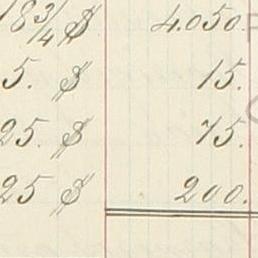 18 3/4 $ 4.050.
5. $ 15.
25. $ 75.
25 $ 200.